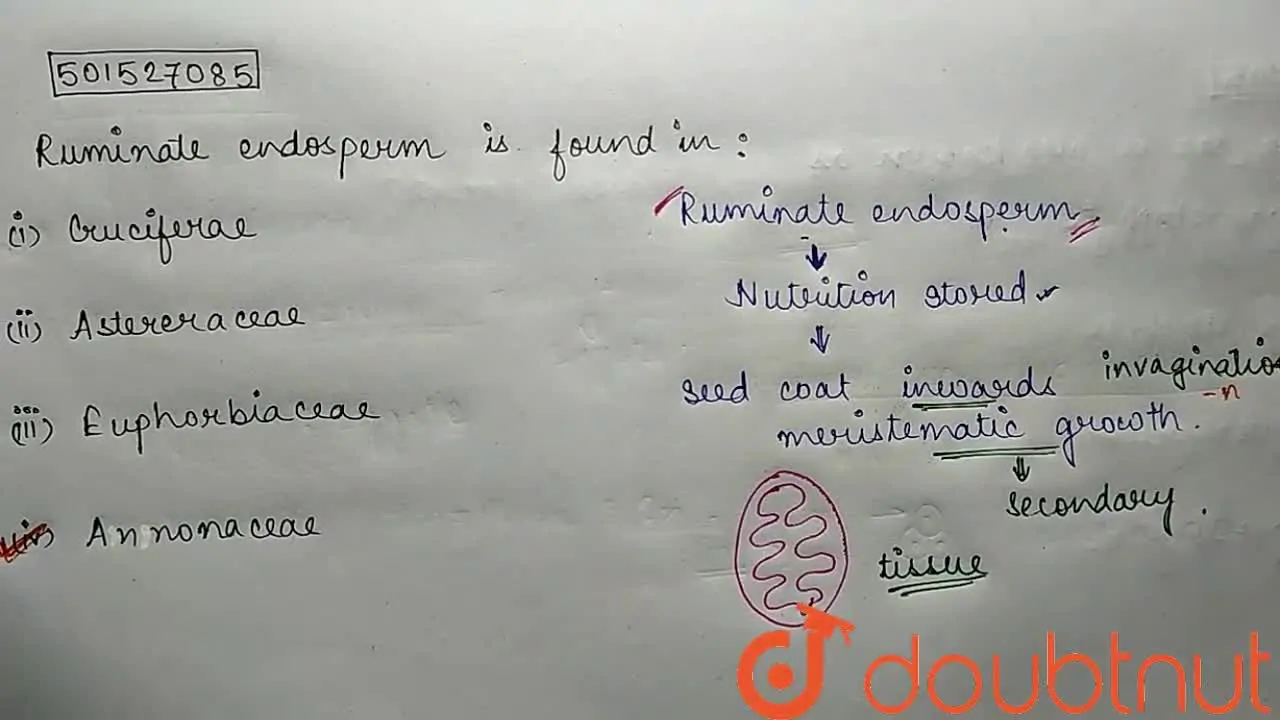 501527085
Ruminate endosperm is found in :
(i) Cruciferae
(ii) Astereraceae
(iii) Euphorbiaceae
(iv) Annonaceae
Ruminate endosperm
Nutrition stored
seed coat inwards invagination
-n
meristematic growth.
secondary.
tissue
doubtnut